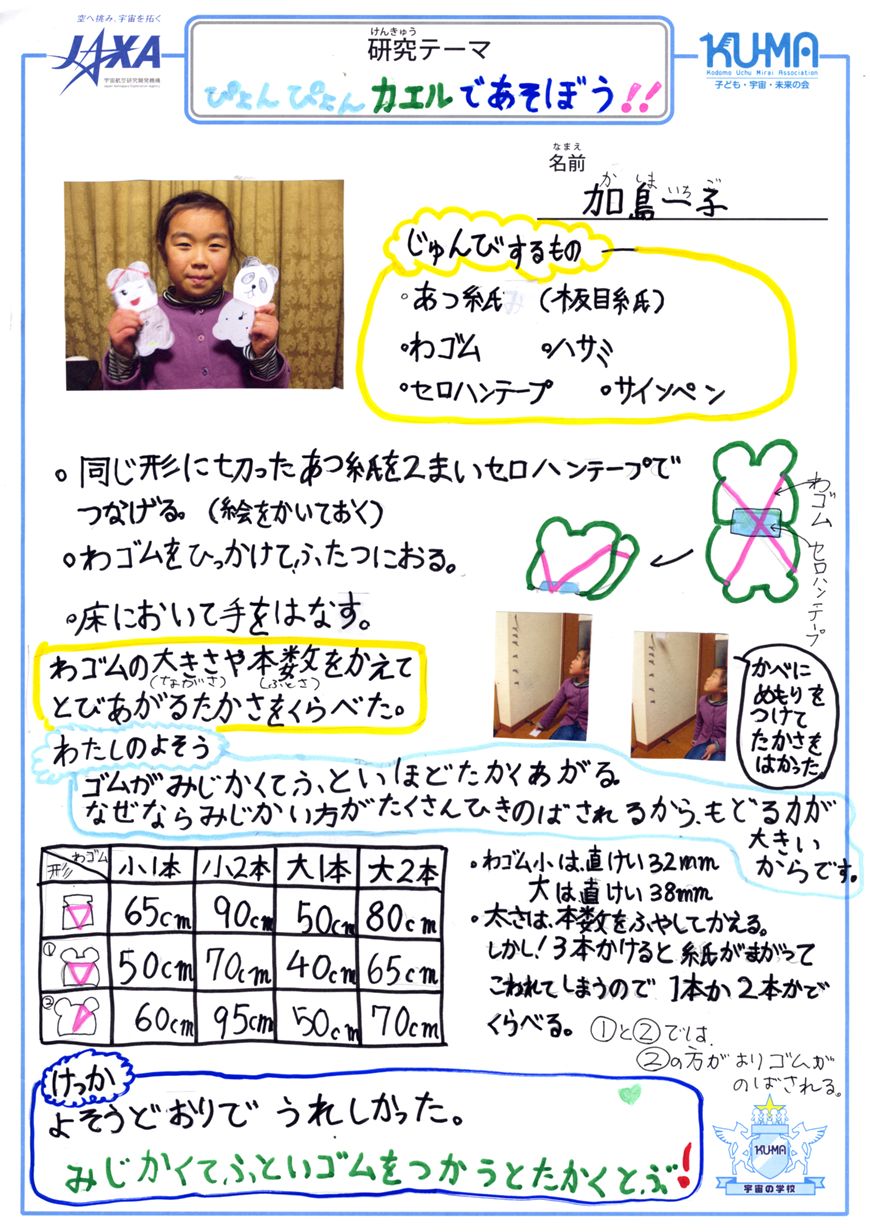 空へ挑み、宇宙を拓く
JAXA
宇宙航空研究開発機構
Japan Aerospace Exploration Agency
けんきゅう
研究テーマ
ぴょんぴょんカエルであそぼう!!
KU-MA
Kodomo Uchu Mirai Association
子ども・宇宙・未来の会
なまえ
名前
かしまいろご
加島一子
じゅんびするもの
・あつ紙 (板目紙)
・わゴム ・ハサミ
・セロハンテープ ・サインペン
・同じ形に切ったあつ紙を2まいセロハンテープで
つなげる。(絵をかいておく)
・わゴムをひっかけて、ふたつにおる。
・床において手をはなす。
わゴム
セロハンテープ
わゴムの大きさや本数をかえて
(ながさ) (ふとさ)
とびあがるたかさをくらべた。
かべに
めもりを
つけて
たかさを
はかった
わたしのよそう
ゴムがみじかくてふといほどたかくあがる。
なぜならみじかい方がたくさんひきのばされるから、もどる力が
大きい
からです。
形 わゴム 小1本 小2本 大1本 大2本
65cm 90cm 50cm 80cm
① 50cm 70cm 40cm 65cm
② 60cm 95cm 50cm 70cm
・わゴム小は、直けい32mm
大は、直けい38mm
・太さは、本数をふやしてかえる。
しかし!3本かけると紙がまがって
こわれてしまうので1本か2本かで
くらべる。
①と②では、
②の方がよりゴムが
のばされる。
けっか
よそうどおりで うれしかった。
みじかくて、ふといゴムをつかうとたかくとぶ!
KU-MA
宇宙の学校